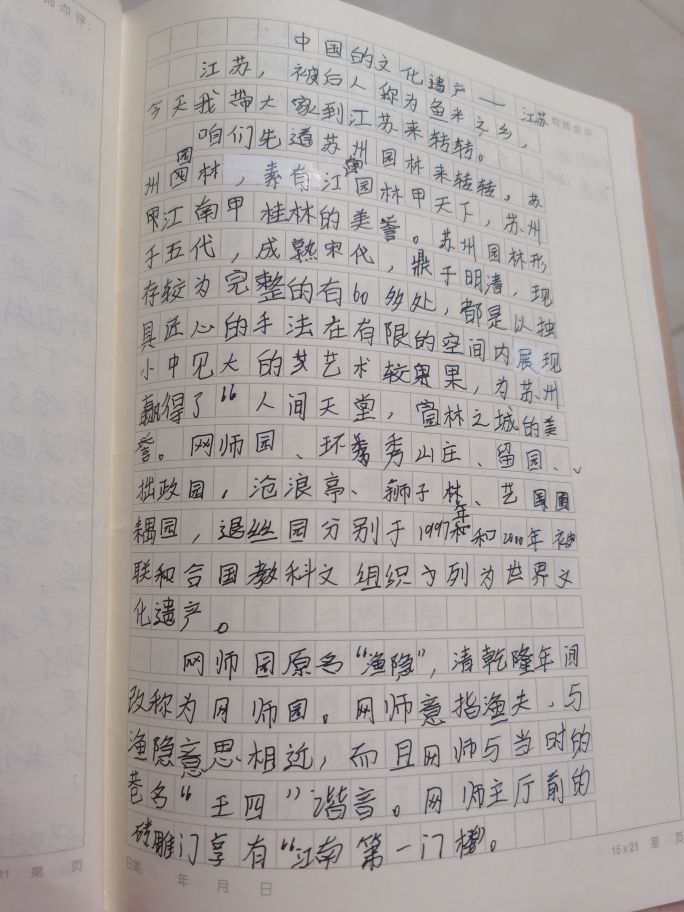 中国的文化遗产——江苏
江苏，被后人称为鱼米之乡，
今天我带大家到江苏来转转。
咱们先逛苏州园林来转转，苏
州园林，素有江南园林甲天下，苏州
甲江南甲桂林的美誉。苏州园林形
于五代，成熟宋代，鼎于明清，现
存较为完整的有60多处，都是以独
具匠心的手法在有限的空间内展现
小中见大的艺术较果，为苏州
赢得了“人间天堂，园林之城的美
誉。网师园、环秀山庄、留园、
拙政园，沧浪亭、狮子林、艺圃
耦园，退丝园分别于1997年和2000年被
联和合国教科文组织列为世界文
化遗产。
网师园原名“渔隐”，清乾隆年间
改称为网师园。网师意指渔夫、与
渔隐意思相近，而且网师与当时的
巷名“王四”谐音。网师主厅前的
砖雕门享有“江南第一门楼”。
教师点评：
15x21 第 页
日期： 年 月 日
21 第 页